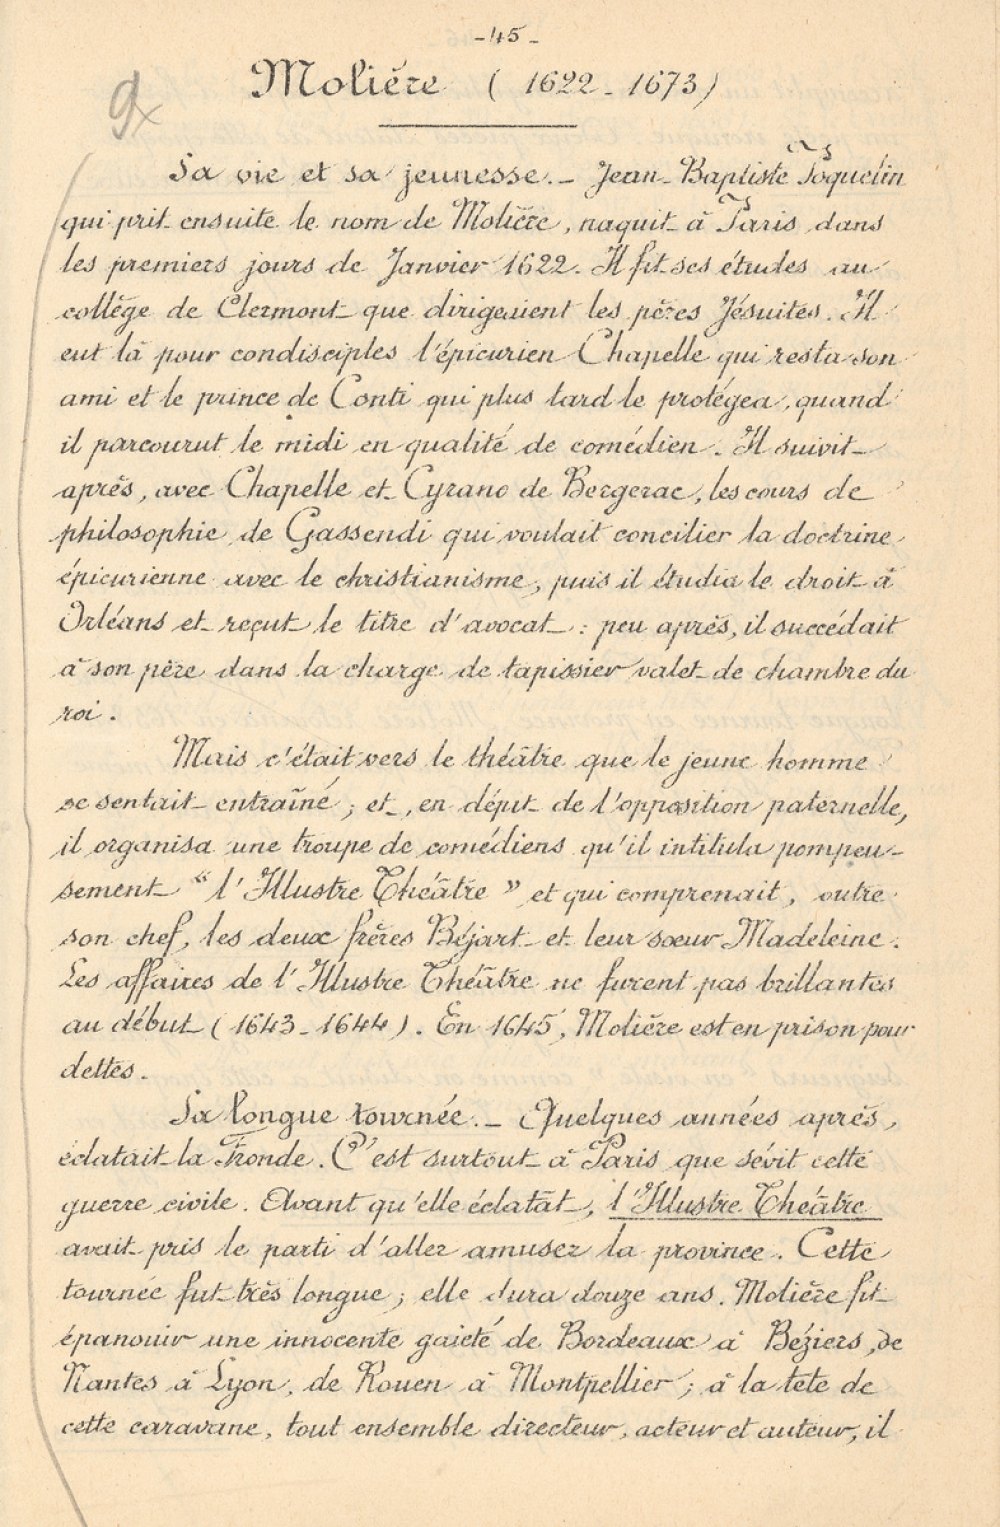 -45-
Molière ( 1622 - 1673 )
Sa vie et sa jeunesse. - Jean-Baptiste Poquelin
qui prit ensuite le nom de Molière, naquit à Paris dans
les premiers jours de Janvier 1622. Il fit ses études au
collège de Clermont que dirigeaient les pères Jésuites. Il
eut là pour condisciples l'épicurien Chapelle qui resta son
ami et le prince de Conti qui plus tard le protégea, quand
il parcourut le midi en qualité de comédien. Il suivit
après, avec Chapelle et Cyrano de Bergerac, les cours de
philosophie de Gassendi qui voulait concilier la doctrine
épicurienne avec le christianisme, puis il étudia le droit à
Orléans et reçut le titre d'avocat : peu après, il succédait
à son père dans la charge de tapissier valet de chambre du
roi.
Mais c'était vers le théâtre que le jeune homme
se sentait entraîné ; et, en dépit de l'opposition paternelle,
il organisa une troupe de comédiens qu'il intitula pompeu-
sement "l'Illustre Théâtre" et qui comprenait, outre
son chef, les deux frères Béjart et leur sœur Madeleine.
Les affaires de l'Illustre Théâtre ne furent pas brillantes
au début (1643-1644). En 1645, Molière est en prison pour
dettes.
Sa longue tournée. - Quelques années après,
éclatait la Fronde. C'est surtout à Paris que sévit cette
guerre civile. Avant qu'elle éclatât, l'Illustre Théâtre
avait pris le parti d'aller amuser la province. Cette
tournée fut très longue ; elle dura douze ans. Molière fit
épanouir une innocente gaieté de Bordeaux à Béziers, de
Nantes à Lyon, de Rouen à Montpellier ; à la tête de
cette caravane, tout ensemble directeur, acteur et auteur, il